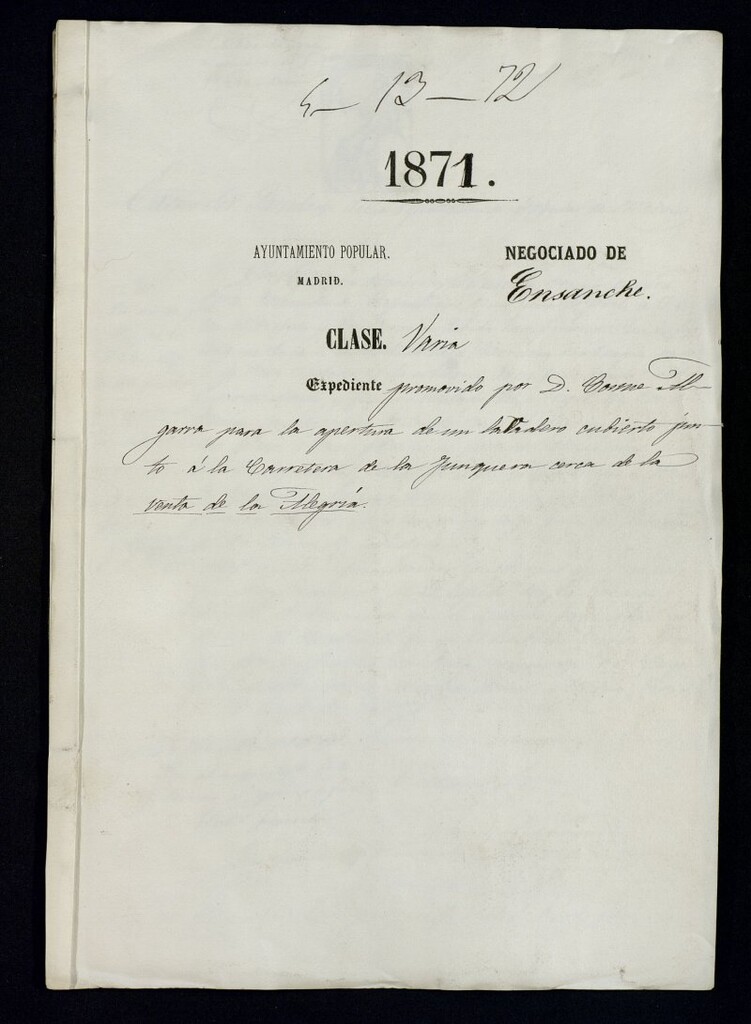 5 — 13 — 72
1871.
AYUNTAMIENTO POPULAR.
MADRID.
NEGOCIADO DE
Ensanche.
CLASE. Varia
Expediente promovido por D. Cosme Al-
garra para la apertura de un lavadero cubierto jun-
to á la Carretera de la Junquera cerca de la
venta de la Alegría.